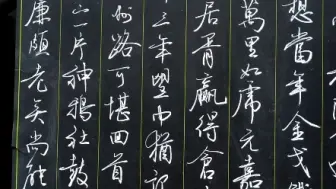 想當年金戈鐵
萬里如虎元嘉
居胥贏得倉
三年望中猶記
州路可堪回首
一片神鴉社鼓
廉頗老矣尚能